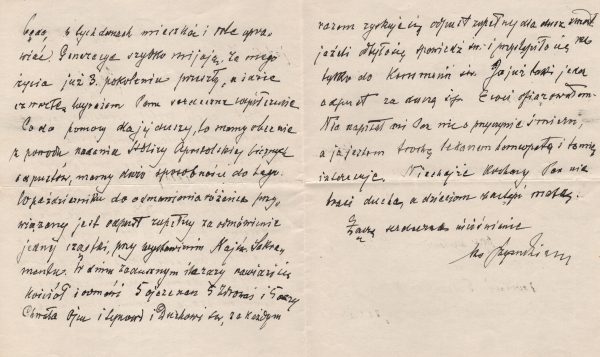 będą, w tych domach mieszkać i role upra-
wiać. Generacje szybko mijają. Za mego
życia już 3. pokolenia przeszły, a idzie
czwarte. Wyrażam Panu serdeczne współczucie.
Co do pomocy dla jej duszy, to mamy obecnie
z powodu nadania Stolicy Apostolskiej licznych
odpustów, mamy dużo sposobności do tego.
W październiku do odmawiania różańca przy-
wiązany jest odpust zupełny za odmówienie
jednej cząstki, przy wystawieniu Najśw. Sakra-
mentu. W dniu zadusznym ilerazy nawiedzi się
kościół i odmówi 5 ojcze nasz 5 Zdrowaś i 5 razy
Chwała Ojcu i Synowi i Duchowi św., za każdym
razem zyskuje się odpust zupełny dla dusz zmarł.
jeżeli odbyło się spowiedź św. i przystąpiło się
tylko do Komunii św. Ja już taki jeden
odpust za duszę śp. Zosi ofiarowałem.
Nie napisał mi Pan nic o przyczynie śmierci,
a ja jestem trochę lekarzem homeopatą i to mię
interesuje. Niechaj że Kochany Pan nie
traci ducha, a dzieciom zastąpi matkę.
Łączę serdeczne uściśnienie